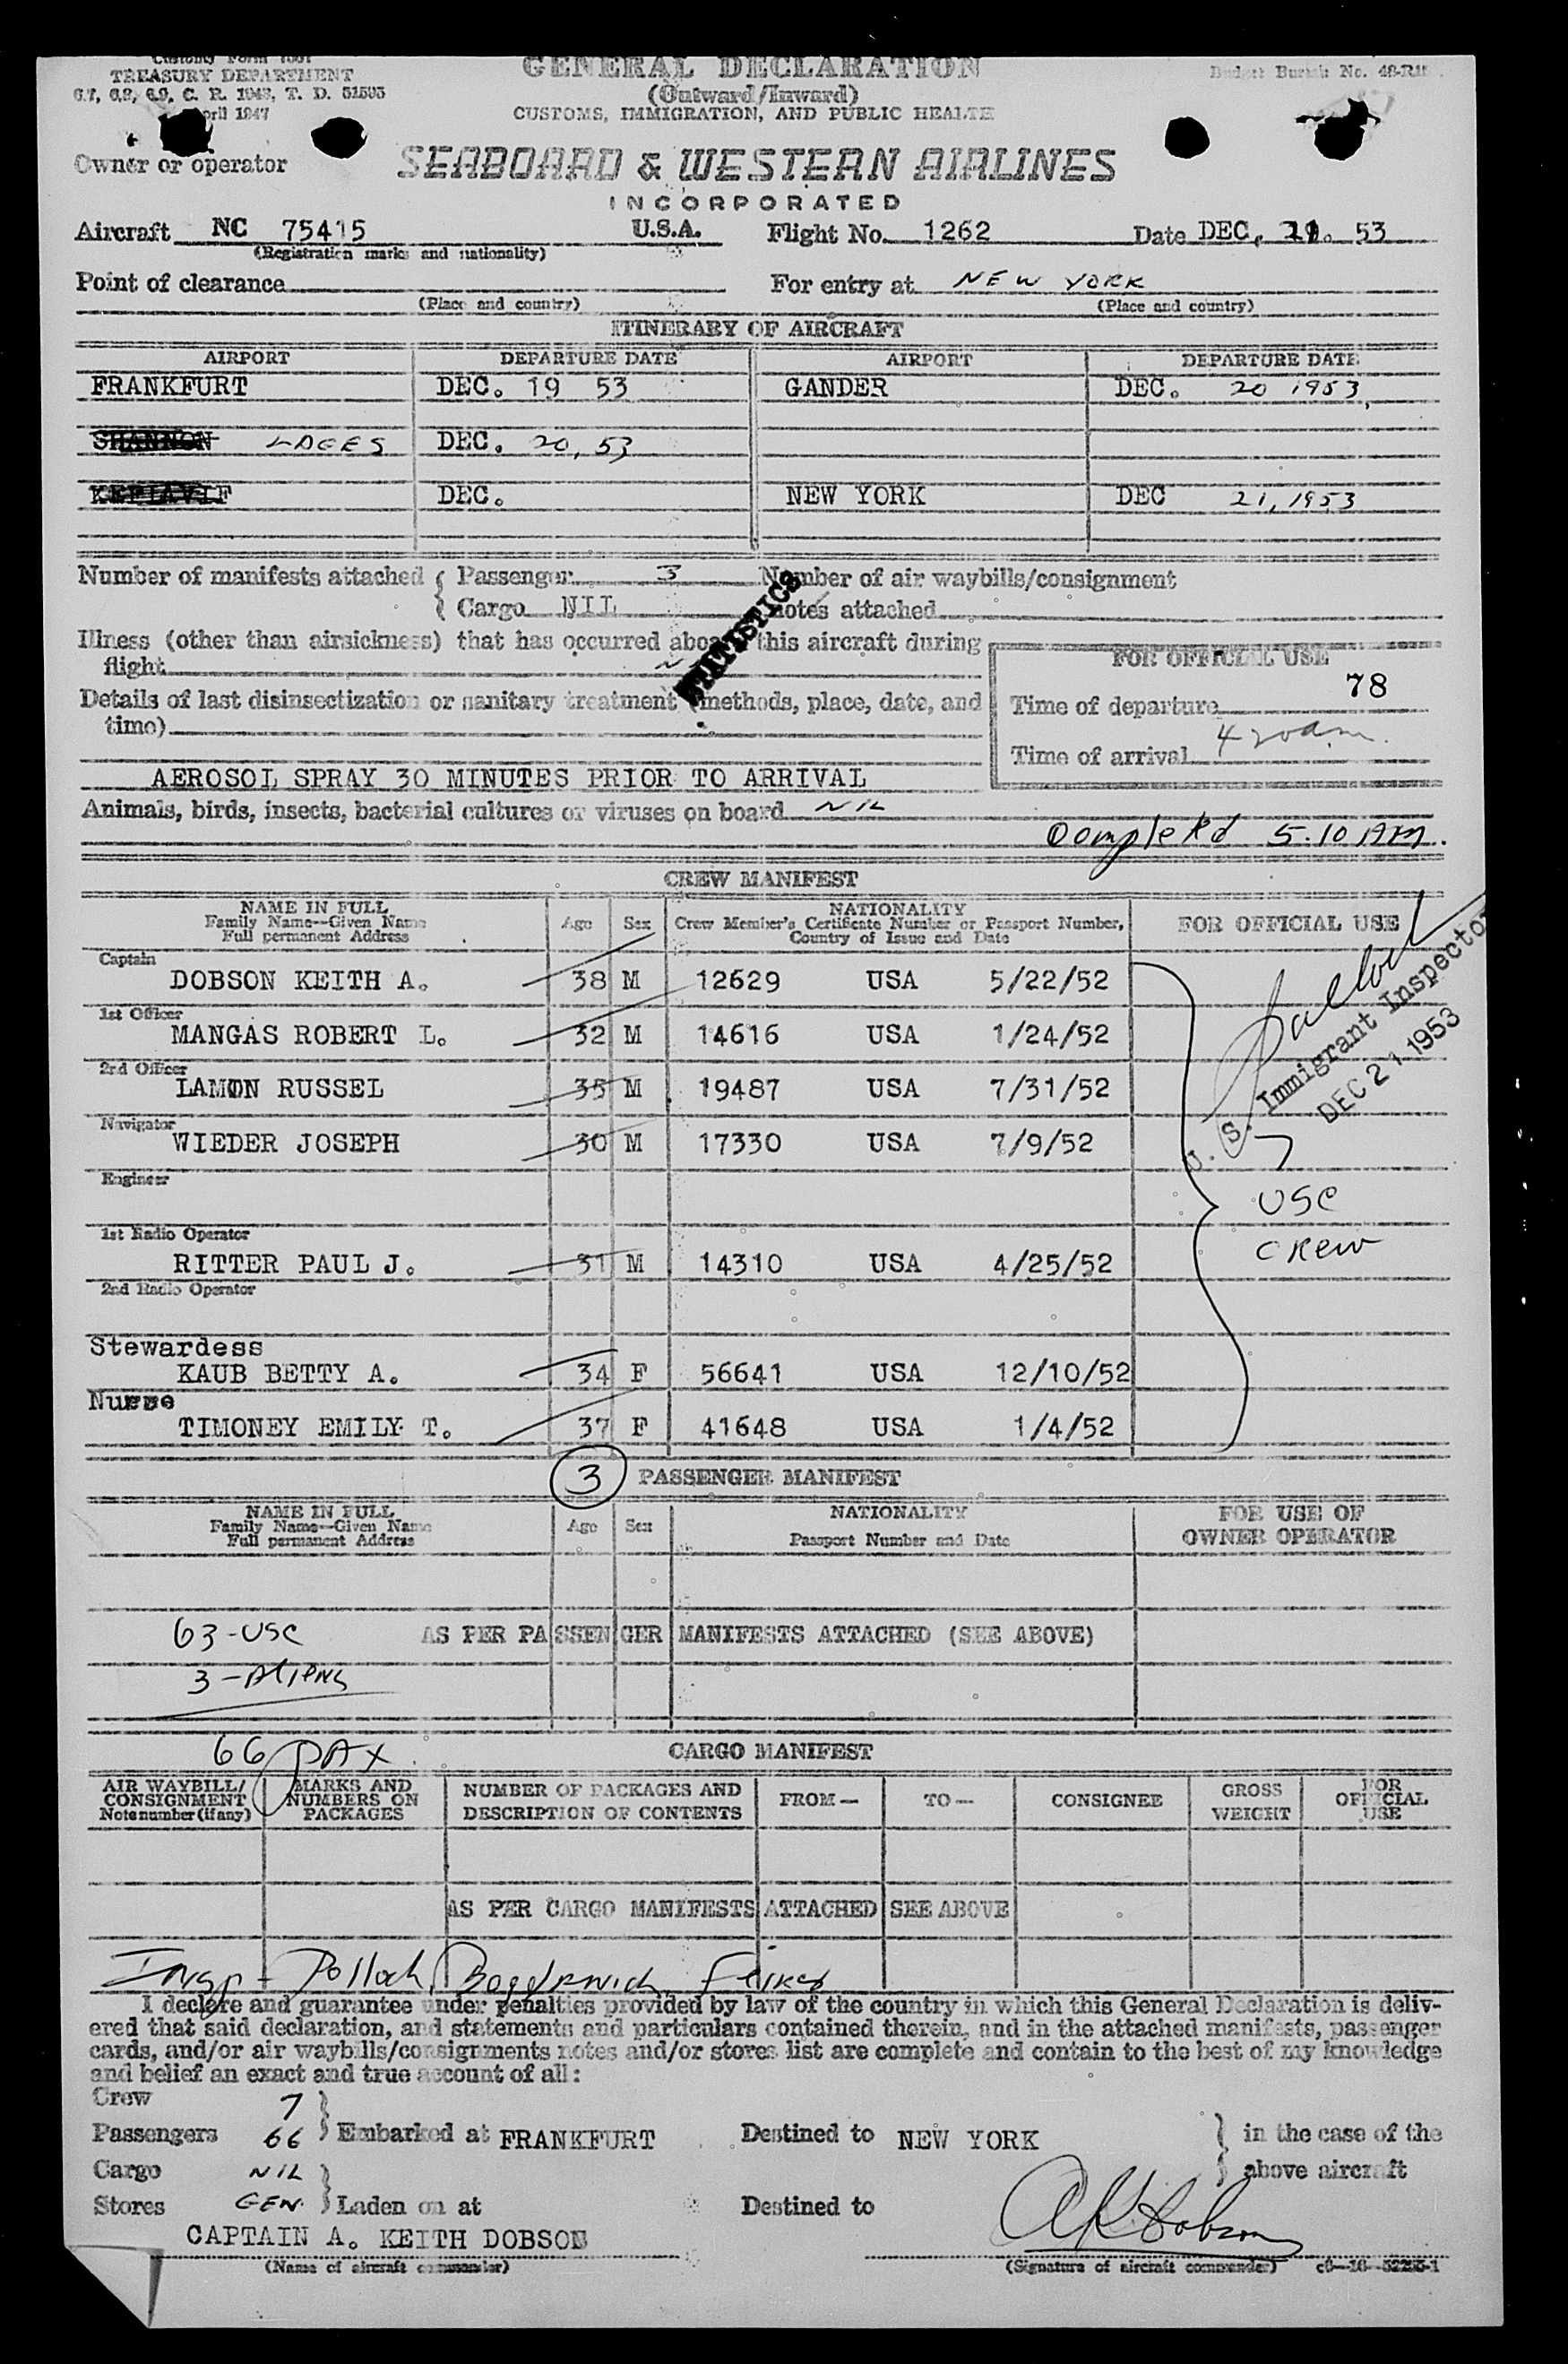 Customs Form 7507
TREASURY DEPARTMENT
6.7, 6.8, 6.9, C. R. 1943, T. D. 51593
April 1947
GENERAL DECLARATION
(Outward/Inward)
CUSTOMS, IMMIGRATION, AND PUBLIC HEALTH
Budget Bureau No. 48-R
Owner or operator
SEABOARD & WESTERN AIRLINES
INCORPORATED
Aircraft NC 75415 U.S.A. Flight No. 1262 Date DEC. 53
(Registration marks and nationality)
Point of clearance For entry at NEW YORK
(Place and country) (Place and country)
ITINERARY OF AIRCRAFT
AIRPORT DEPARTURE DATE AIRPORT DEPARTURE DATE
FRANKFURT DEC. 19 53 GANDER DEC. 20 1953
SHANNON LAGES DEC. 20, 53
KEFLAVIF DEC. NEW YORK DEC 21, 1953
Number of manifests attached { Passenger 3 Number of air waybills/consignment
{ Cargo NIL notes attached
STATISTICS
Illness (other than airsickness) that has occurred aboard this aircraft during
flight
Details of last disinsectization or sanitary treatment (methods, place, date, and
time)
FOR OFFICIAL USE
78
Time of departure
Time of arrival 4 20 a.m.
AEROSOL SPRAY 30 MINUTES PRIOR TO ARRIVAL
Animals, birds, insects, bacterial cultures or viruses on board NIL
Completed 5.10 AM.
CREW MANIFEST
NAME IN FULL
Family Name--Given Name
Full permanent Address
Age Sex
NATIONALITY
Crew Member's Certificate Number or Passport Number,
Country of Issue and Date
FOR OFFICIAL USE
Captain
DOBSON KEITH A. 38 M 12629 USA 5/22/52
1st Officer
MANGAS ROBERT L. 32 M 14616 USA 1/24/52
2nd Officer
LAMON RUSSEL 35 M 19487 USA 7/31/52
Navigator
WIEDER JOSEPH 30 M 17330 USA 7/9/52
Engineer
1st Radio Operator
RITTER PAUL J. 31 M 14310 USA 4/25/52
2nd Radio Operator
Stewardess
KAUB BETTY A. 34 F 56641 USA 12/10/52
Nurse
TIMONEY EMILY T. 37 F 41648 USA 1/4/52
U. S. Immigrant Inspector
DEC 21 1953
7
USC
CREW
3 PASSENGER MANIFEST
NAME IN FULL
Family Name--Given Name
Full permanent Address
Age Sex
NATIONALITY
Passport Number and Date
FOR USE OF
OWNER OPERATOR
63-USC AS PER PASSENGER MANIFESTS ATTACHED (SEE ABOVE)
3-ALIENS
66 PAX
CARGO MANIFEST
AIR WAYBILL/
CONSIGNMENT
Note number (if any)
MARKS AND
NUMBERS ON
PACKAGES
NUMBER OF PACKAGES AND
DESCRIPTION OF CONTENTS
FROM— TO— CONSIGNEE
GROSS
WEIGHT
FOR
OFFICIAL
USE
AS PER CARGO MANIFESTS ATTACHED SEE ABOVE
Insp-
I declare and guarantee under penalties provided by law of the country in which this General Declaration is deliv-
ered that said declaration, and statements and particulars contained therein, and in the attached manifests, passenger
cards, and/or air waybills/consignments notes and/or stores list are complete and contain to the best of my knowledge
and belief an exact and true account of all:
Crew 7
Passengers 66 } Embarked at FRANKFURT Destined to NEW YORK } in the case of the
Cargo NIL above aircraft
Stores GEN. } Laden on at Destined to
CAPTAIN A. KEITH DOBSON AKDobson
(Name of aircraft commander) (Signature of aircraft commander)